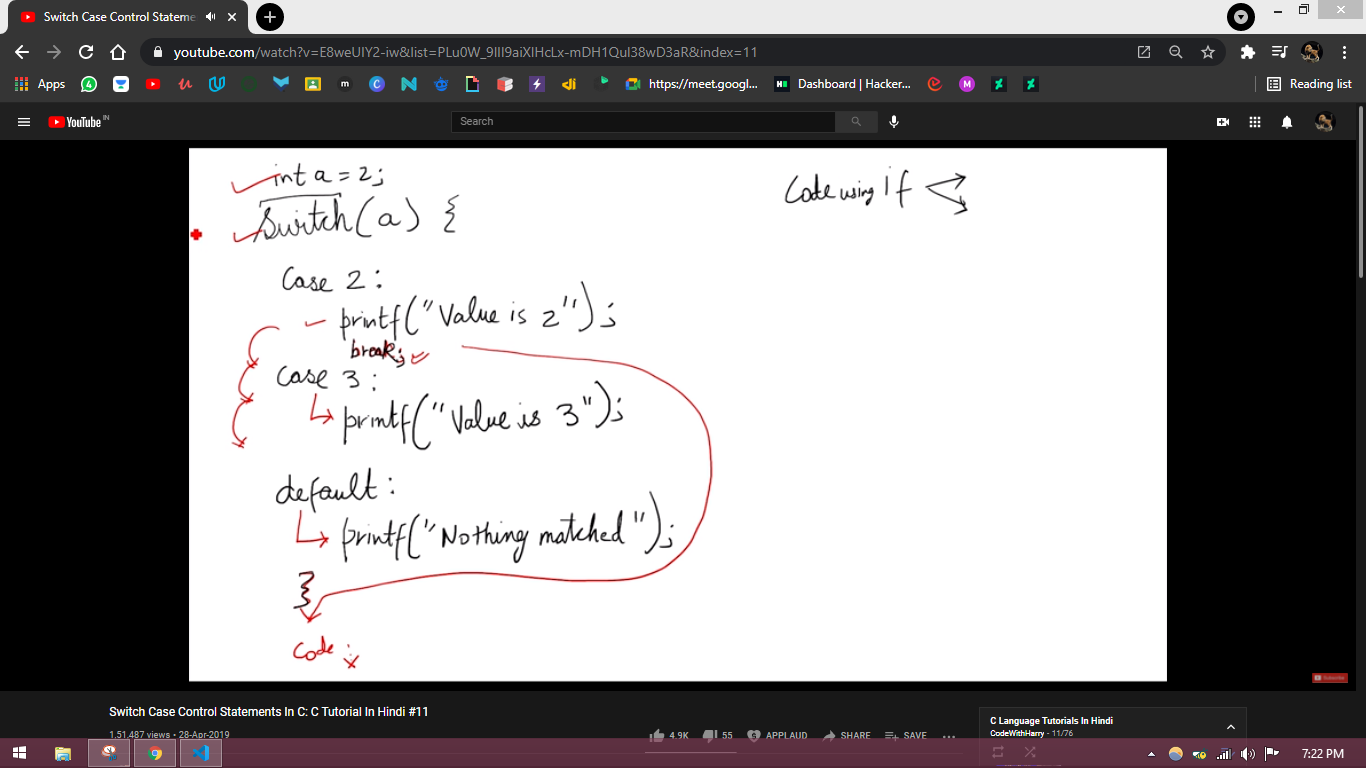 Switch Case Control Stateme
youtube.com/watch?v=E8weUIY2-iw&list=PLu0W_9lII9aiXlHcLx-mDH1Qul38wD3aR&index=11
Apps
https://meet.googl...
Dashboard | Hacker...
Reading list
YouTube IN
Search
int a = 2;
Switch(a) {
Code using if
Case 2:
printf("Value is 2");
break;
Case 3:
printf("Value is 3");
default:
printf("Nothing matched");
}
Code :
Subscribe
Switch Case Control Statements In C: C Tutorial In Hindi #11
1,51,487 views • 28-Apr-2019
4.9K
55
APPLAUD
SHARE
SAVE
C Language Tutorials In Hindi
CodeWithHarry - 11/76
7:22 PM